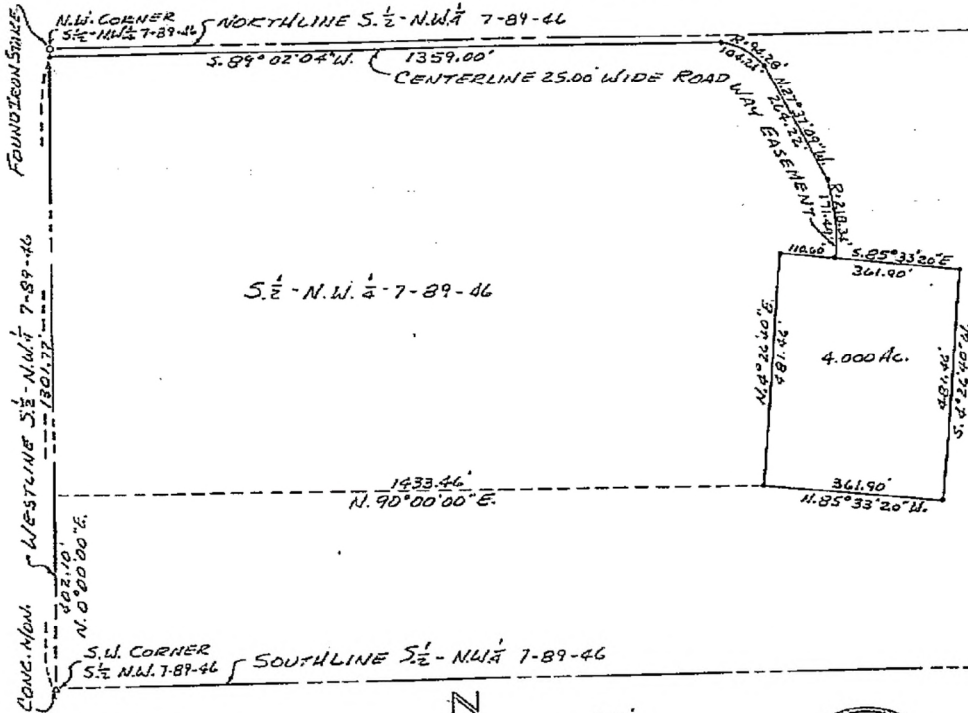 N.W. CORNER
S½-N.W.¼ 7-89-46
NORTHLINE S.½-N.W.¼ 7-89-46
FOUND IRON STAKE
S.89°02'04"W. 1359.00'
CENTERLINE 25.00' WIDE ROAD WAY EASEMENT
R=94.28'
104.24'
N.27°37'09"W.
264.22'
R=218.34'
171.49'
110.60'
S.85°33'20"E
361.90'
WESTLINE S.½-N.W.¼ 7-89-46
1301.77'
S.½-N.W.¼-7-89-46
N.4°26'40"E.
481.46'
4.000 Ac.
S.4°26'40"W.
481.46'
1433.46'
N.90°00'00"E.
361.90'
N.85°33'20"W.
402.10'
N.0°00'00"E.
CONC. MON.
S.W. CORNER
S½ N.W. 7-89-46
SOUTHLINE S½-N.W.¼ 7-89-46
N